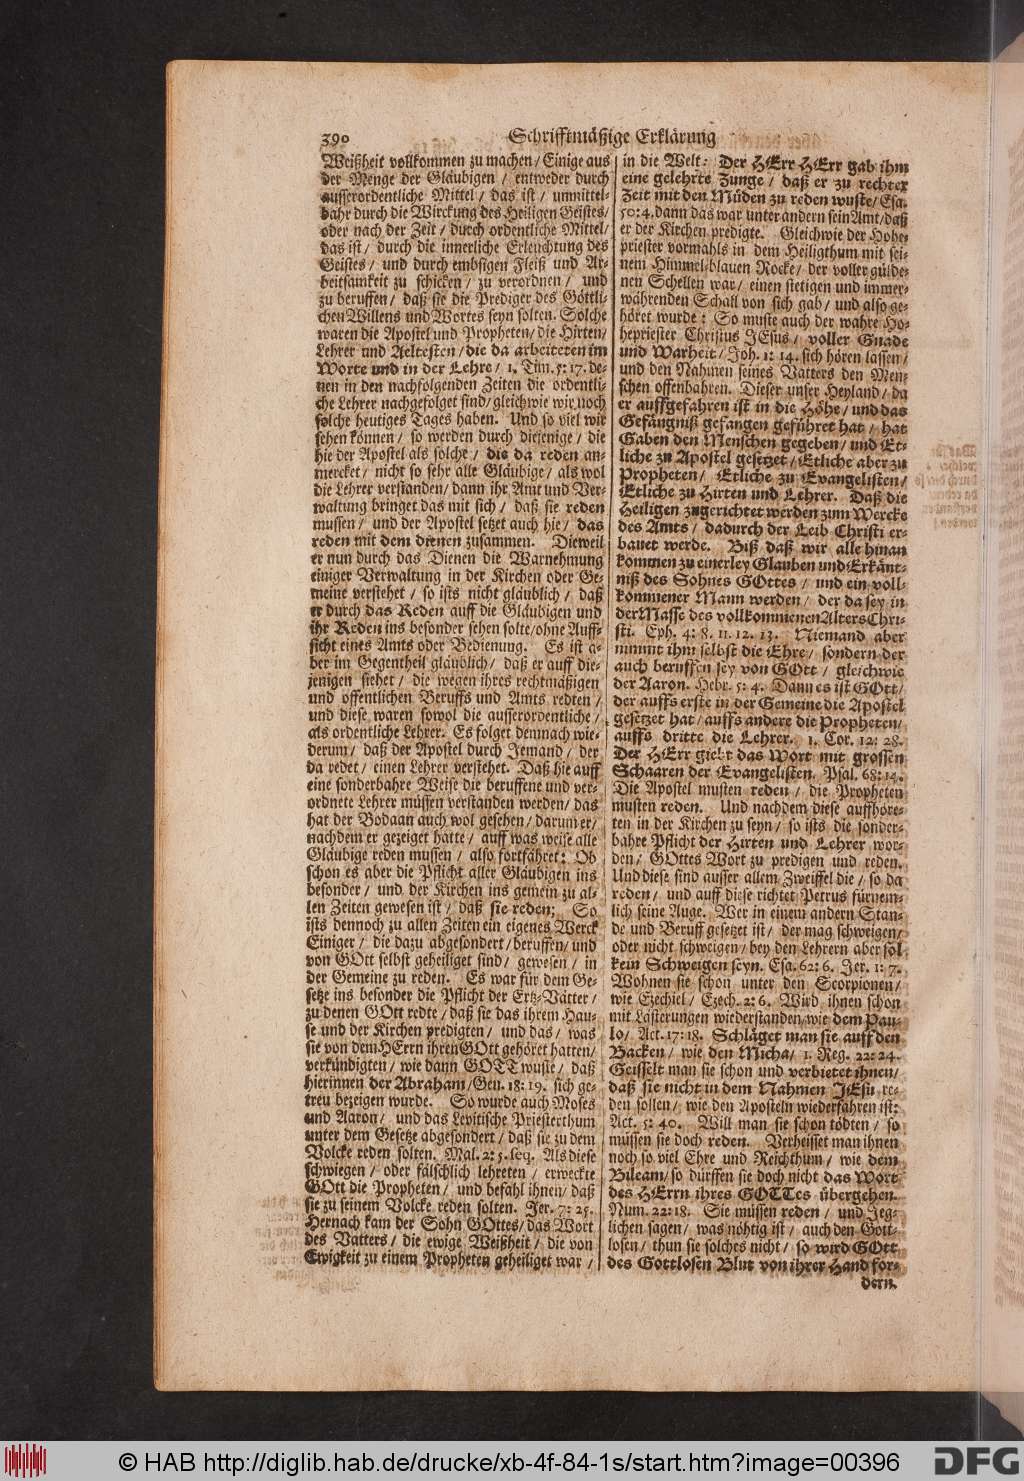 390
Schrifftmäßige Erklärung
Weißheit vollkommen zu machen/ Einige aus
der Menge der Gläubigen / entweder durch
ausserordentliche Mittel / das ist / unmittel-
bahr durch die Wirckung des Heiligen Geistes/
oder nach der Zeit / durch ordentliche Mittel/
das ist / durch die innerliche Erleuchtung des
Geistes / und durch embsigen Fleiß und Ar-
beitsamkeit zu schicken / zu verordnen / und
zu beruffen / daß sie die Prediger des Göttli-
chen Willens und Wortes seyn solten. Solche
waren die Apostel und Propheten/ die Hirten/
Lehrer und Aeltesten / die da arbeiteten im
Worte und in der Lehre / 1. Tim. 5: 17. de-
nen in den nachfolgenden Zeiten die ordentli-
che Lehrer nachgefolget sind/ gleichwie wir noch
solche heutiges Tages haben. Und so viel wir
sehen können / so werden durch diejenige / die
hie der Apostel als solche / die da reden an-
mercket / nicht so sehr alle Gläubige / als wol
die Lehrer verstanden/ dann ihr Amt und Ver-
waltung bringet das mit sich / daß sie reden
mussen / und der Apostel setzet auch hie / das
reden mit dem dienen zusammen. Dieweil
er nun durch das Dienen die Warnehmung
einiger Verwaltung in der Kirchen oder Ge-
meine verstehet / so ists nicht gläublich / daß
er durch das Reden auff die Gläubigen und
ihr Reden ins besonder sehen solte/ ohne Auff-
sicht eines Amts oder Bedienung. Es ist a-
ber im Gegentheil gläublich / daß er auff die-
jenigen siehet / die wegen ihres rechtmäßigen
und öffentlichen Beruffs und Amts redten /
und diese waren sowol die ausserordentliche /
als ordentliche Lehrer. Es folget demnach wie-
derum / daß der Apostel durch Jemand / der
da redet / einen Lehrer verstehet. Daß hie auff
eine sonderbahre Weise die beruffene und ver-
ordnete Lehrer müssen verstanden werden/ das
hat der Bodaan auch wol gesehen/ darum er/
nachdem er gezeiget hatte / auff was weise alle
Gläubige reden mussen / also fortfähret: Ob
schon es aber die Pflicht aller Gläubigen ins
besonder / und der Kirchen ins gemein zu al-
len Zeiten gewesen ist / daß sie reden; So
ists dennoch zu allen Zeiten ein eigenes Werck
Einiger / die dazu abgesondert / beruffen/ und
von GOtt selbst geheiliget sind / gewesen / in
der Gemeine zu reden. Es war für dem Ge-
setze ins besonder die Pflicht der Ertz-Vätter /
zu denen GOtt redte / daß sie das ihrem Hau-
se und der Kirchen predigten / und das / was
sie von dem HErrn ihren GOtt gehöret hatten/
verkündigten / wie dann GOTT wuste / daß
hierinnen der Abraham/ Gen. 18: 19. sich ge-
treu bezeigen wurde. So wurde auch Moses
und Aaron / und das Levitische Priesterthum
unter dem Gesetze abgesondert / daß sie zu dem
Volcke reden solten. Mal. 2: 5. seq. Als diese
schwiegen / oder fälschlich lehreten / erweckte
GOtt die Propheten / und befahl ihnen/ daß
sie zu seinem Volcke reden solten. Jer. 7: 25.
Hernach kam der Sohn GOttes/ das Wort
des Vatters / die ewige Weißheit / die von
Ewigkeit zu einem Propheten geheiliget war /
in die Welt: Der HErr HErr gab ihm
eine gelehrte Zunge / daß er zu rechter
Zeit mit den Müden zu reden wuste/ Esa.
50: 4. dann das war unter andern sein Amt/ daß
er der Kirchen predigte. Gleichwie der Hohe-
priester vormahls in dem Heiligthum mit sei-
nem Himmel-blauen Rocke / der voller gülde-
nen Schellen war / einen stetigen und immer-
währenden Schall von sich gab / und also ge-
höret wurde: So muste auch der wahre Ho-
hepriester Christus JEsus / voller Gnade
und Warheit / Joh. 1: 14. sich hören lassen /
und den Nahmen seines Vatters den Men-
schen offenbahren. Dieser unser Heyland / da
er auffgefahren ist in die Höhe / und das
Gefängniß gefangen geführet hat / hat
Gaben den Menschen gegeben / und Et-
liche zu Apostel gesetzet / Etliche aber zu
Propheten / Etliche zu Evangelisten /
Etliche zu Hirten und Lehrer. Daß die
Heiligen zugerichtet werden zum Wercke
des Amts / dadurch der Leib Christi er-
bauet werde. Biß daß wir alle hinan
kommen zu einerley Glauben und Erkänt-
niß des Sohnes GOttes / und ein voll-
kommener Mann werden / der da sey in
der Masse des vollkommenen Alters Chri-
sti. Eph. 4: 8. 11. 12. 13. Niemand aber
nimmt ihm selbst die Ehre / sondern der
auch beruffen sey von GOtt / gleichwie
der Aaron. Hebr. 5: 4. Dann es ist GOtt/
der auffs erste in der Gemeine die Apostel
gesetzet hat / auffs andere die Propheten/
auffs dritte die Lehrer. 1. Cor. 12: 28.
Der HErr giebt das Wort mit grossen
Schaaren der Evangelisten. Psal. 68: 14.
Die Apostel musten reden / die Propheten
musten reden. Und nachdem diese auffhöre-
ten in der Kirchen zu seyn / so ists die sonder-
bahre Pflicht der Hirten und Lehrer wor-
den / GOttes Wort zu predigen und reden.
Und diese sind ausser allem Zweiffel die / so da
reden / und auff diese richtet Petrus fürnem-
lich seine Auge. Wer in einem andern Stan-
de und Beruff gesetzet ist / der mag schweigen/
oder nicht schweigen / bey den Lehrern aber sol
kein Schweigen seyn. Esa. 62: 6. Jer. 1: 7.
Wohnen sie schon unter den Scorpionen /
wie Ezechiel / Ezech. 2: 6. Wird ihnen schon
mit Lästerungen wiederstanden/ wie dem Pau-
lo / Act. 17: 18. Schläget man sie auff den
Backen / wie den Micha / 1. Reg. 22: 24.
Geisselt man sie schon und verbietet ihnen/
daß sie nicht in dem Nahmen JEsu re-
den sollen / wie den Aposteln wiederfahren ist:
Act. 5: 40. Will man sie schon tödten / so
müssen sie doch reden. Verheisset man ihnen
noch so viel Ehre und Reichthum / wie dem
Bileam / so dürffen sie doch nicht das Wort
des HErrn ihres GOTTes übergehen.
Num. 22: 18. Sie müssen reden / und Jeg-
lichen sagen / was nöhtig ist / auch den Gott-
losen / thun sie solches nicht / so wird GOtt
des Gottlosen Blut von ihrer Hand for-
dern.
© HAB http://diglib.hab.de/drucke/xb-4f-84-1s/start.htm?image=00396
DFG